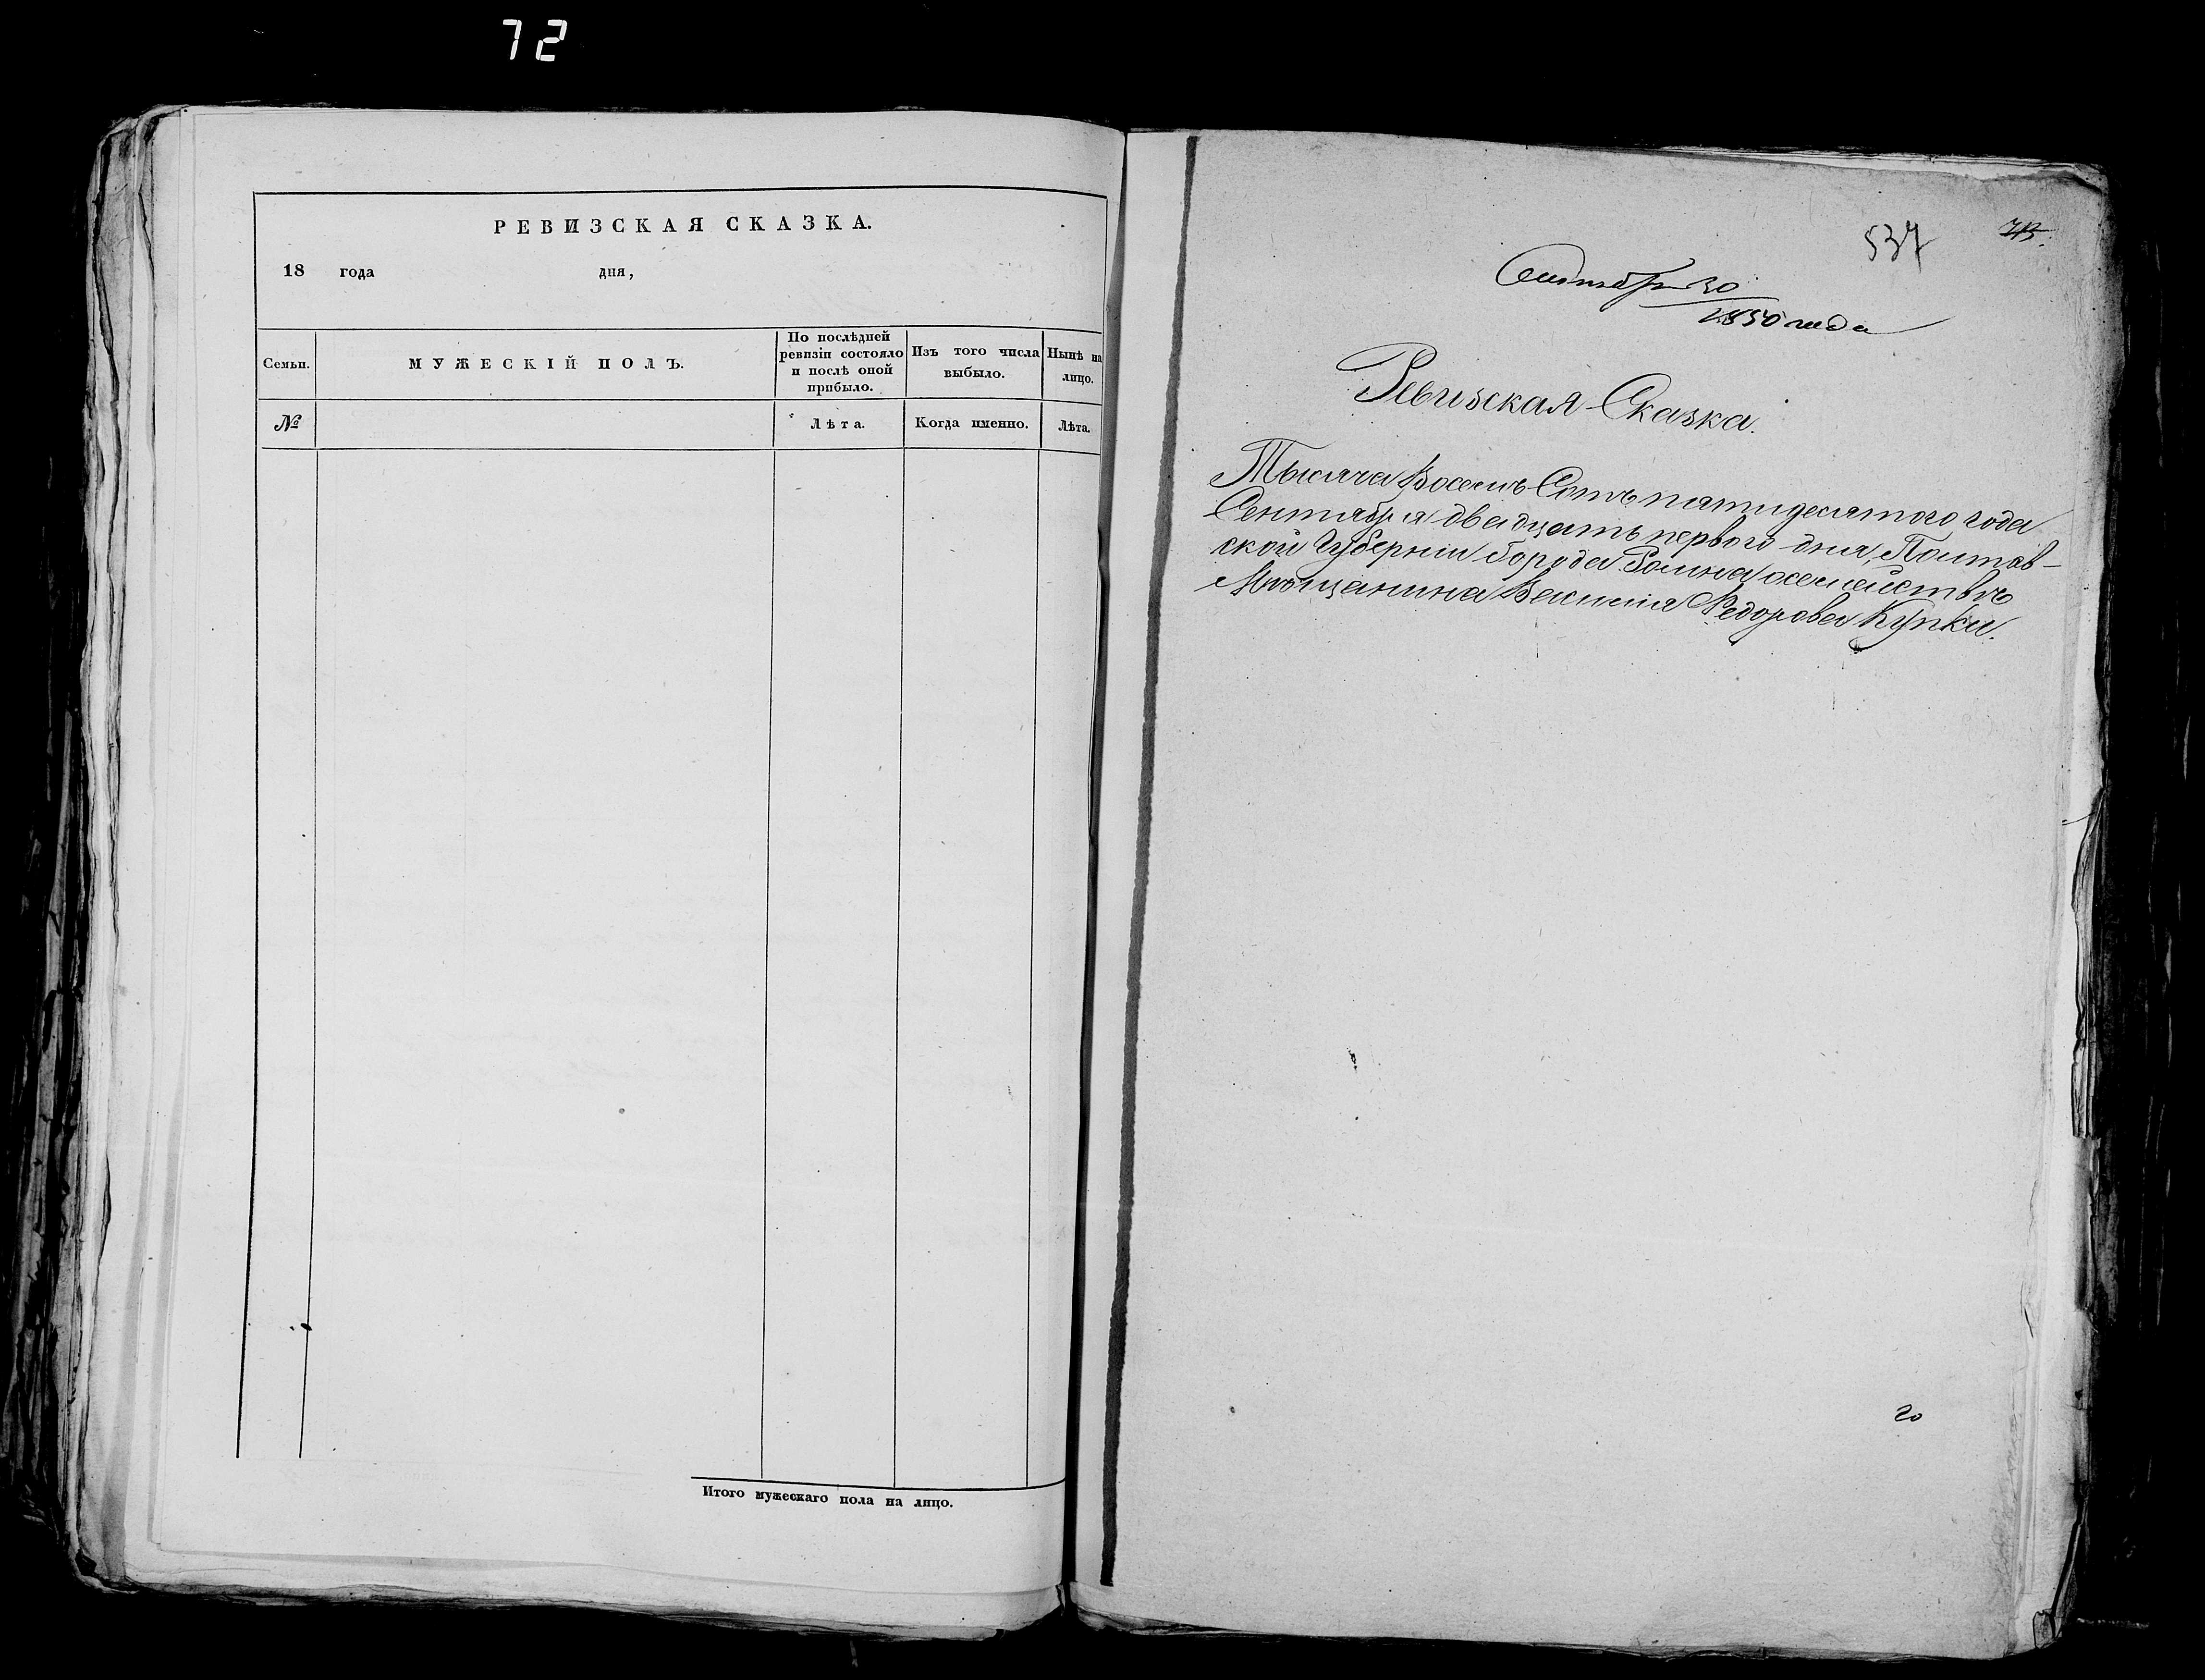 72
РЕВИЗСКАЯ СКАЗКА.
18 года дня,
Семьи.
МУЖЕСКІЙ ПОЛЪ.
По послѣдней
ревизіи состояло
и послѣ оной
прибыло.
Изъ того числа
выбыло.
Нынѣ на
лицо.
№
Лѣта.
Когда именно.
Лѣта.
Итого мужескаго пола на лицо.
537
Сентября 30
1850 года
Ревизская Сказка.
Тысяча Восемь Сотъ пятидесятого года
Сентября двадцать первого дня, Полтав-
ской Губерніи Города Ромна о семействѣ
Мѣщанина Василія Федорова Купки.
20